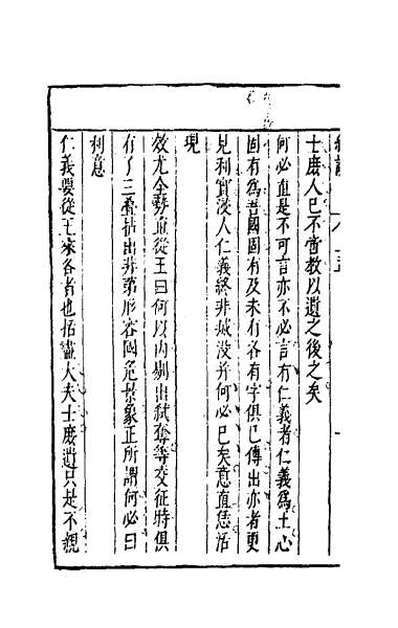 士庶人已不啻教以遺之後之矣
何必直是不可言亦不必言有仁義者仁義為王心
固有為吾國固有及未有各有字俱已傳出亦者更
見利實浸人仁義終非滅没并何必已矣意直恁活
現
效尤全勢直從王曰何以內剔出弒奪等交征時俱
有了三叠拈出非第形容國危景象正所謂何必曰
利意
仁義要從王來各者也括盡大夫士庶遺只是不親